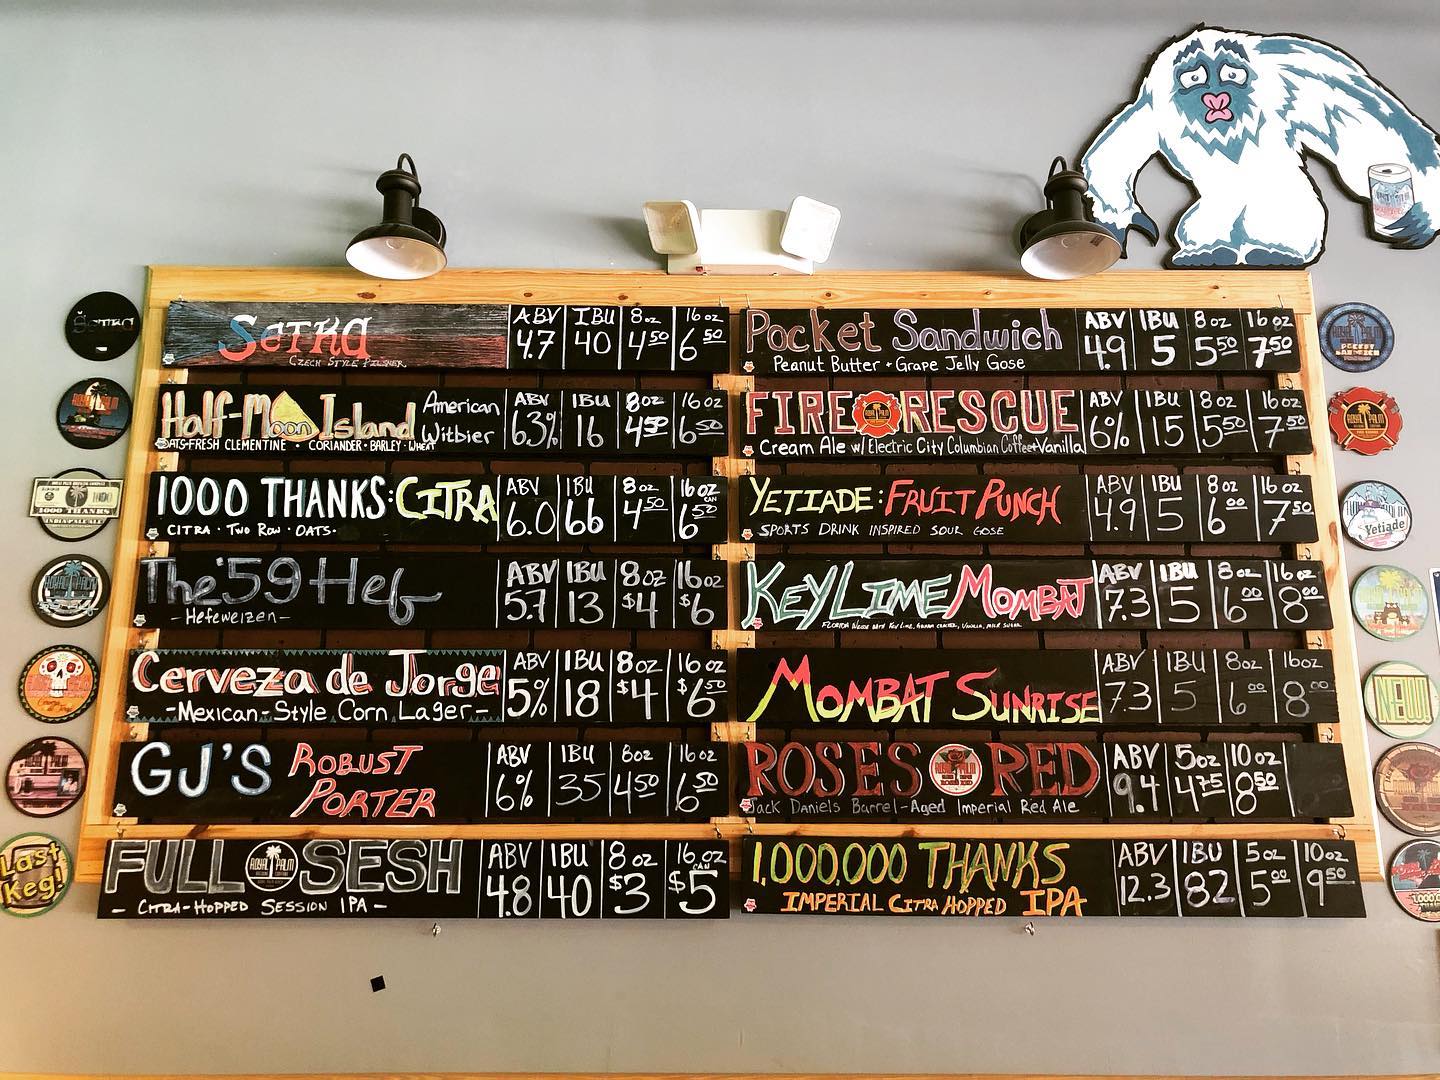 Šatka ABV IBU 8oz 16oz
Czech Style Pilsner 4.7 40 4 50 6 50
Half-Moon Island American Witbier ABV IBU 8oz 16oz
OATS-FRESH CLEMENTINE • CORIANDER • BARLEY • WHEAT 6.3% 16 4 50 6 50
1000 THANKS: CITRA ABV IBU 8oz 16oz CAN
CITRA • TWO ROW • OATS • 6.0 66 4 50 6 50
The '59 Hef ABV IBU 8oz 16oz
-Hefeweizen- 5.7 13 $4 $6
Cerveza de Jorge ABV IBU 8oz 16oz
-Mexican-Style Corn Lager- 5% 18 $4 $6 50
GJ'S ROBUST PORTER ABV IBU 8oz 16oz
6% 35 4 50 6 50
FULL SESH ABV IBU 8oz 16oz CAN
ROYAL PALM
- CITRA-HOPPED SESSION IPA - 4.8 40 $3 $5
Pocket Sandwich ABV IBU 8oz 16oz
Peanut Butter + Grape Jelly Gose 4.9 5 5 50 7 50
FIRE RESCUE ABV IBU 8oz 16oz
ROYAL PALM
Cream Ale w/ Electric City Columbian Coffee + Vanilla 6% 15 5 50 7 50
YETIADE: FRUIT PUNCH ABV IBU 8oz 16oz
SPORTS DRINK INSPIRED SOUR GOSE 4.9 5 6 00 7 50
KEY LIME MOMBAT ABV IBU 8oz 16oz
7.3 5 6 00 8 00
MOMBAT SUNRISE ABV IBU 8oz 16oz
7.3 5 6 00 8 00
ROSES RED ABV 5oz 10oz
ROYAL PALM
Jack Daniels Barrel-Aged Imperial Red Ale 9.4 4 75 8 50
1,000,000 THANKS ABV IBU 5oz 10oz
IMPERIAL CITRA HOPPED IPA 12.3 82 5 00 9 50
Šatka
1000 THANKS
INDIA PALE ALE
Last Keg!
ROYAL PALM
POCKET SANDWICH
ROYAL PALM
Yetiade
NEW!